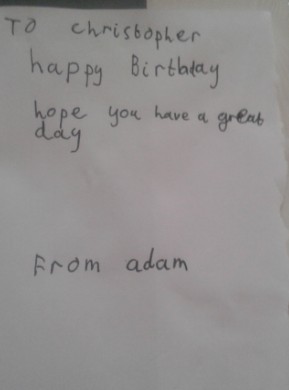 To christopher
happy Birthday
hope you have a great
day
From adam